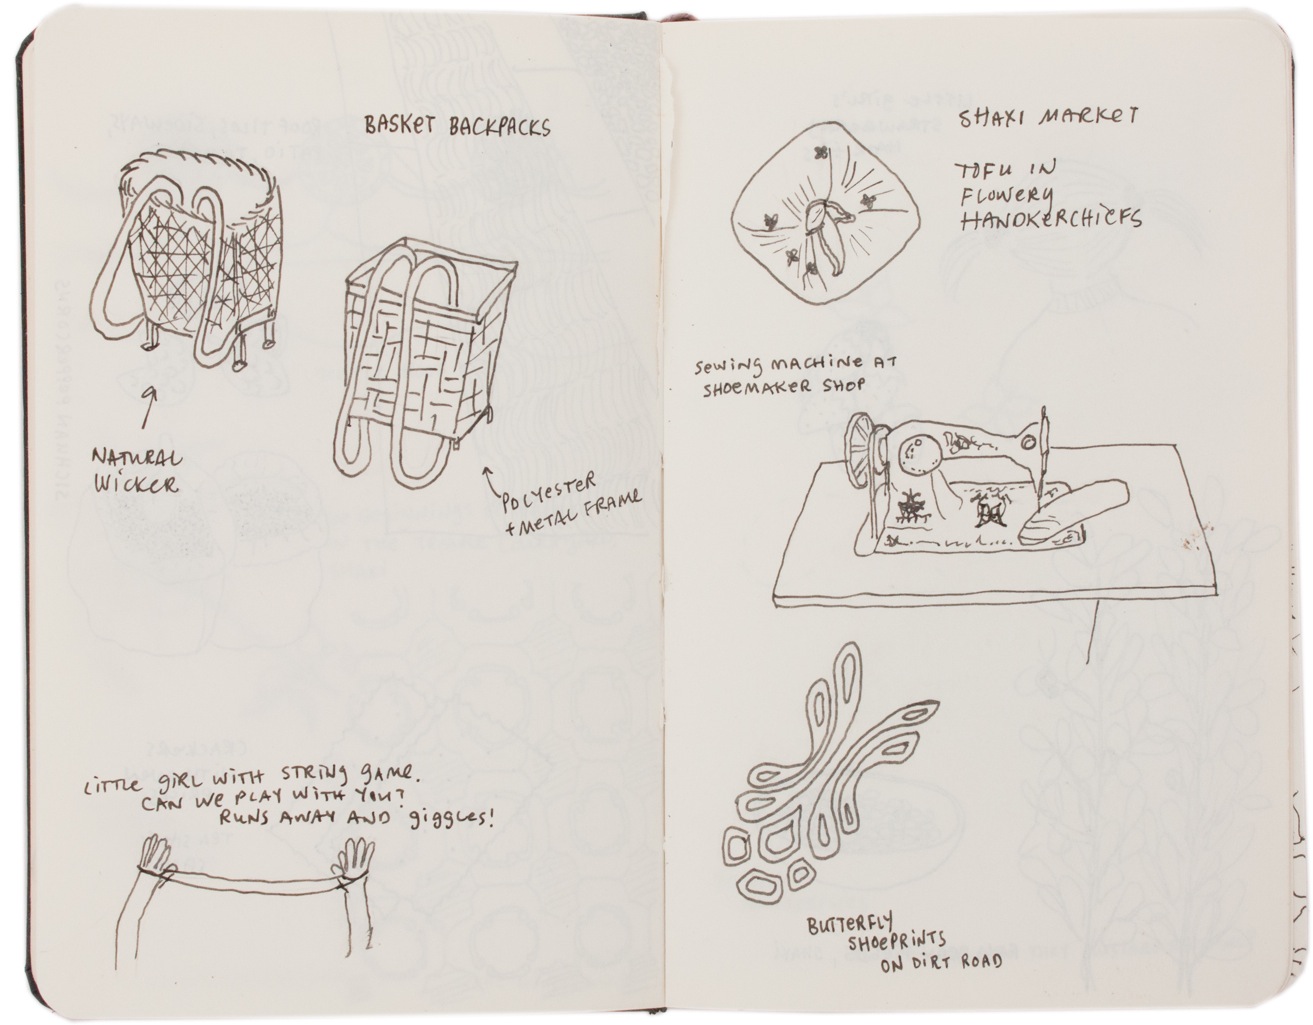 BASKET BACKPACKS
NATURAL
WICKER
POLYESTER
+ METAL FRAME
LITTLE GIRL WITH STRING GAME.
CAN WE PLAY WITH YOU?
RUNS AWAY AND giggles!
SHAXI MARKET
TOFU IN
FLOWERY
HANDKERCHIEFS
SEWING MACHINE AT
SHOEMAKER SHOP
BUTTERFLY
SHOEPRINTS
ON DIRT ROAD